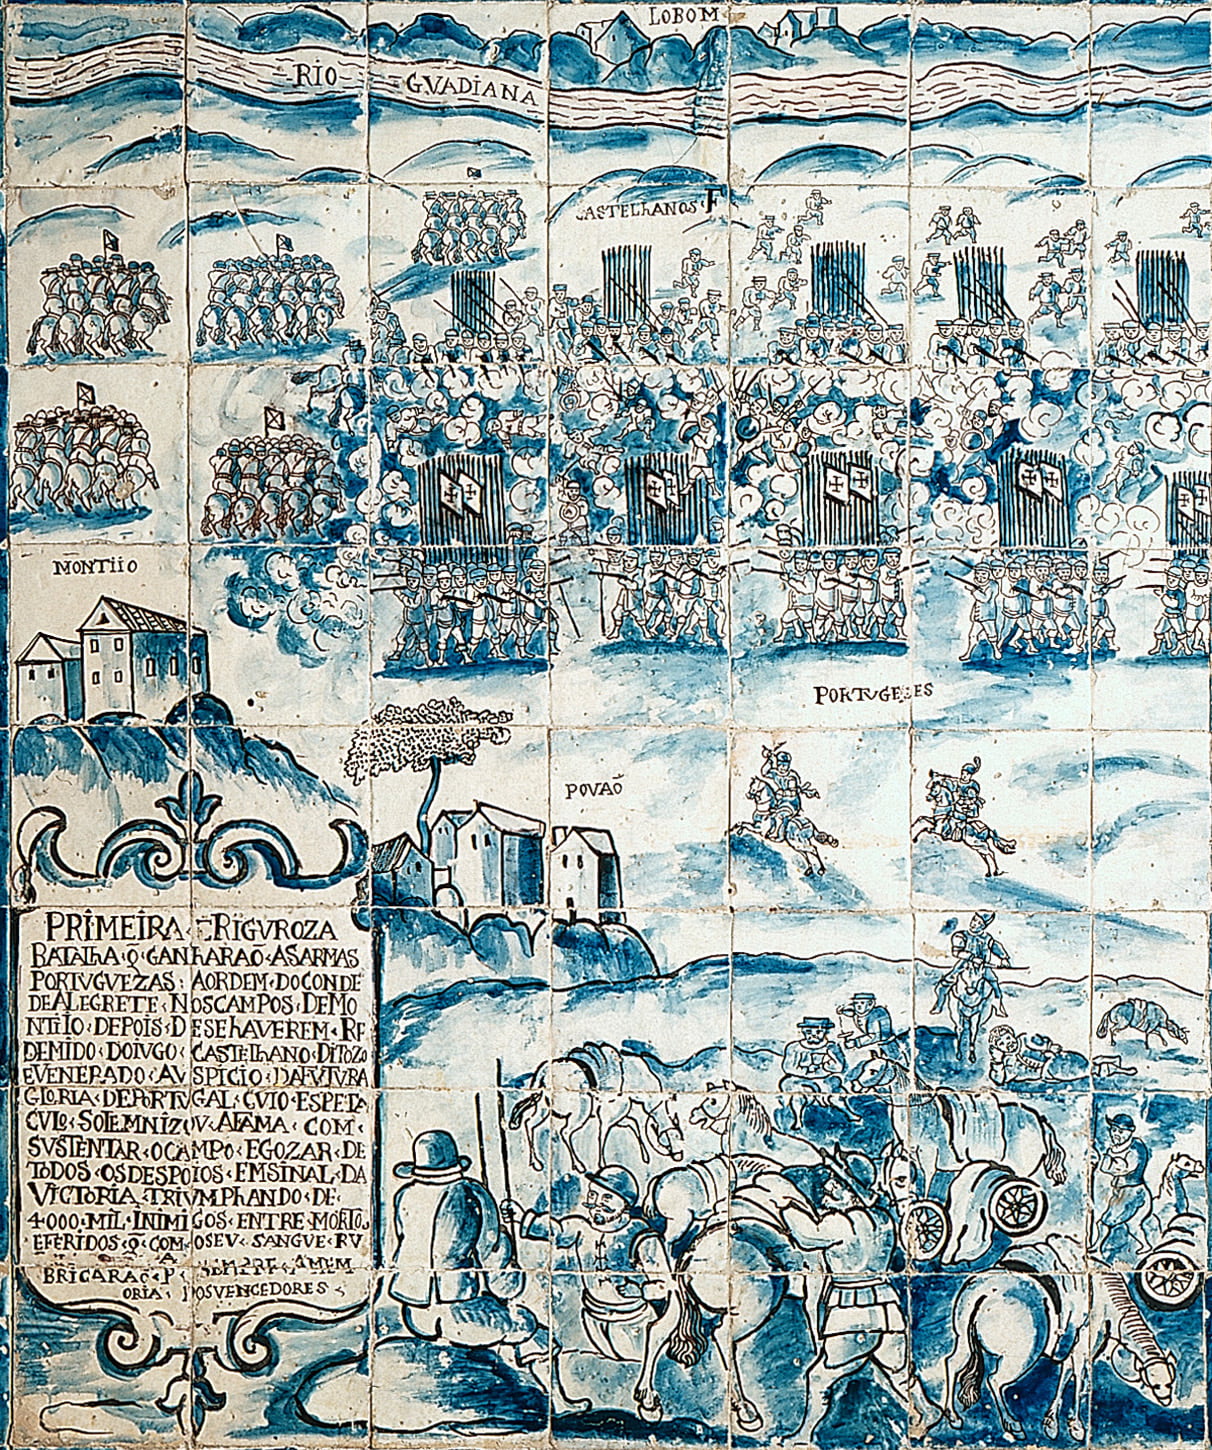 LOBOM
RIO GVADIANA
CASTELHANOS F
MONTIIO
PORTVGEZES
POVAÕ
PRIMEIRA E RIGVROZA
BATALHA Q̃ GANHARAÕ AS ARMAS
PORTVGVEZAS AORDEM DO CONDE
DE ALEGRETE NOS CAMPOS DE MO
NTIIO DEPOIS D ESE HAVEREM RE
DEMIDO DO IVGO CASTELHANO DITOZO
E VENERADO AV SPICIO DA FVTVRA
GLORIA DE PORTV GAL CVIO ESPETA
CVLO SOLEMNIZOV A FAMA COM
SVSTENTAR O CAMPO E GOZAR DE
TODOS OS DESPOIOS EM SINAL DA
VICTORIA TRIVMPHANDO DE
4000 MIL INIMIGOS ENTRE MORTO
E FERIDOS Q̃ COM O SEV SANGVE RV
BRICARAÕ P A MEM
ORIA OS VENCEDORES